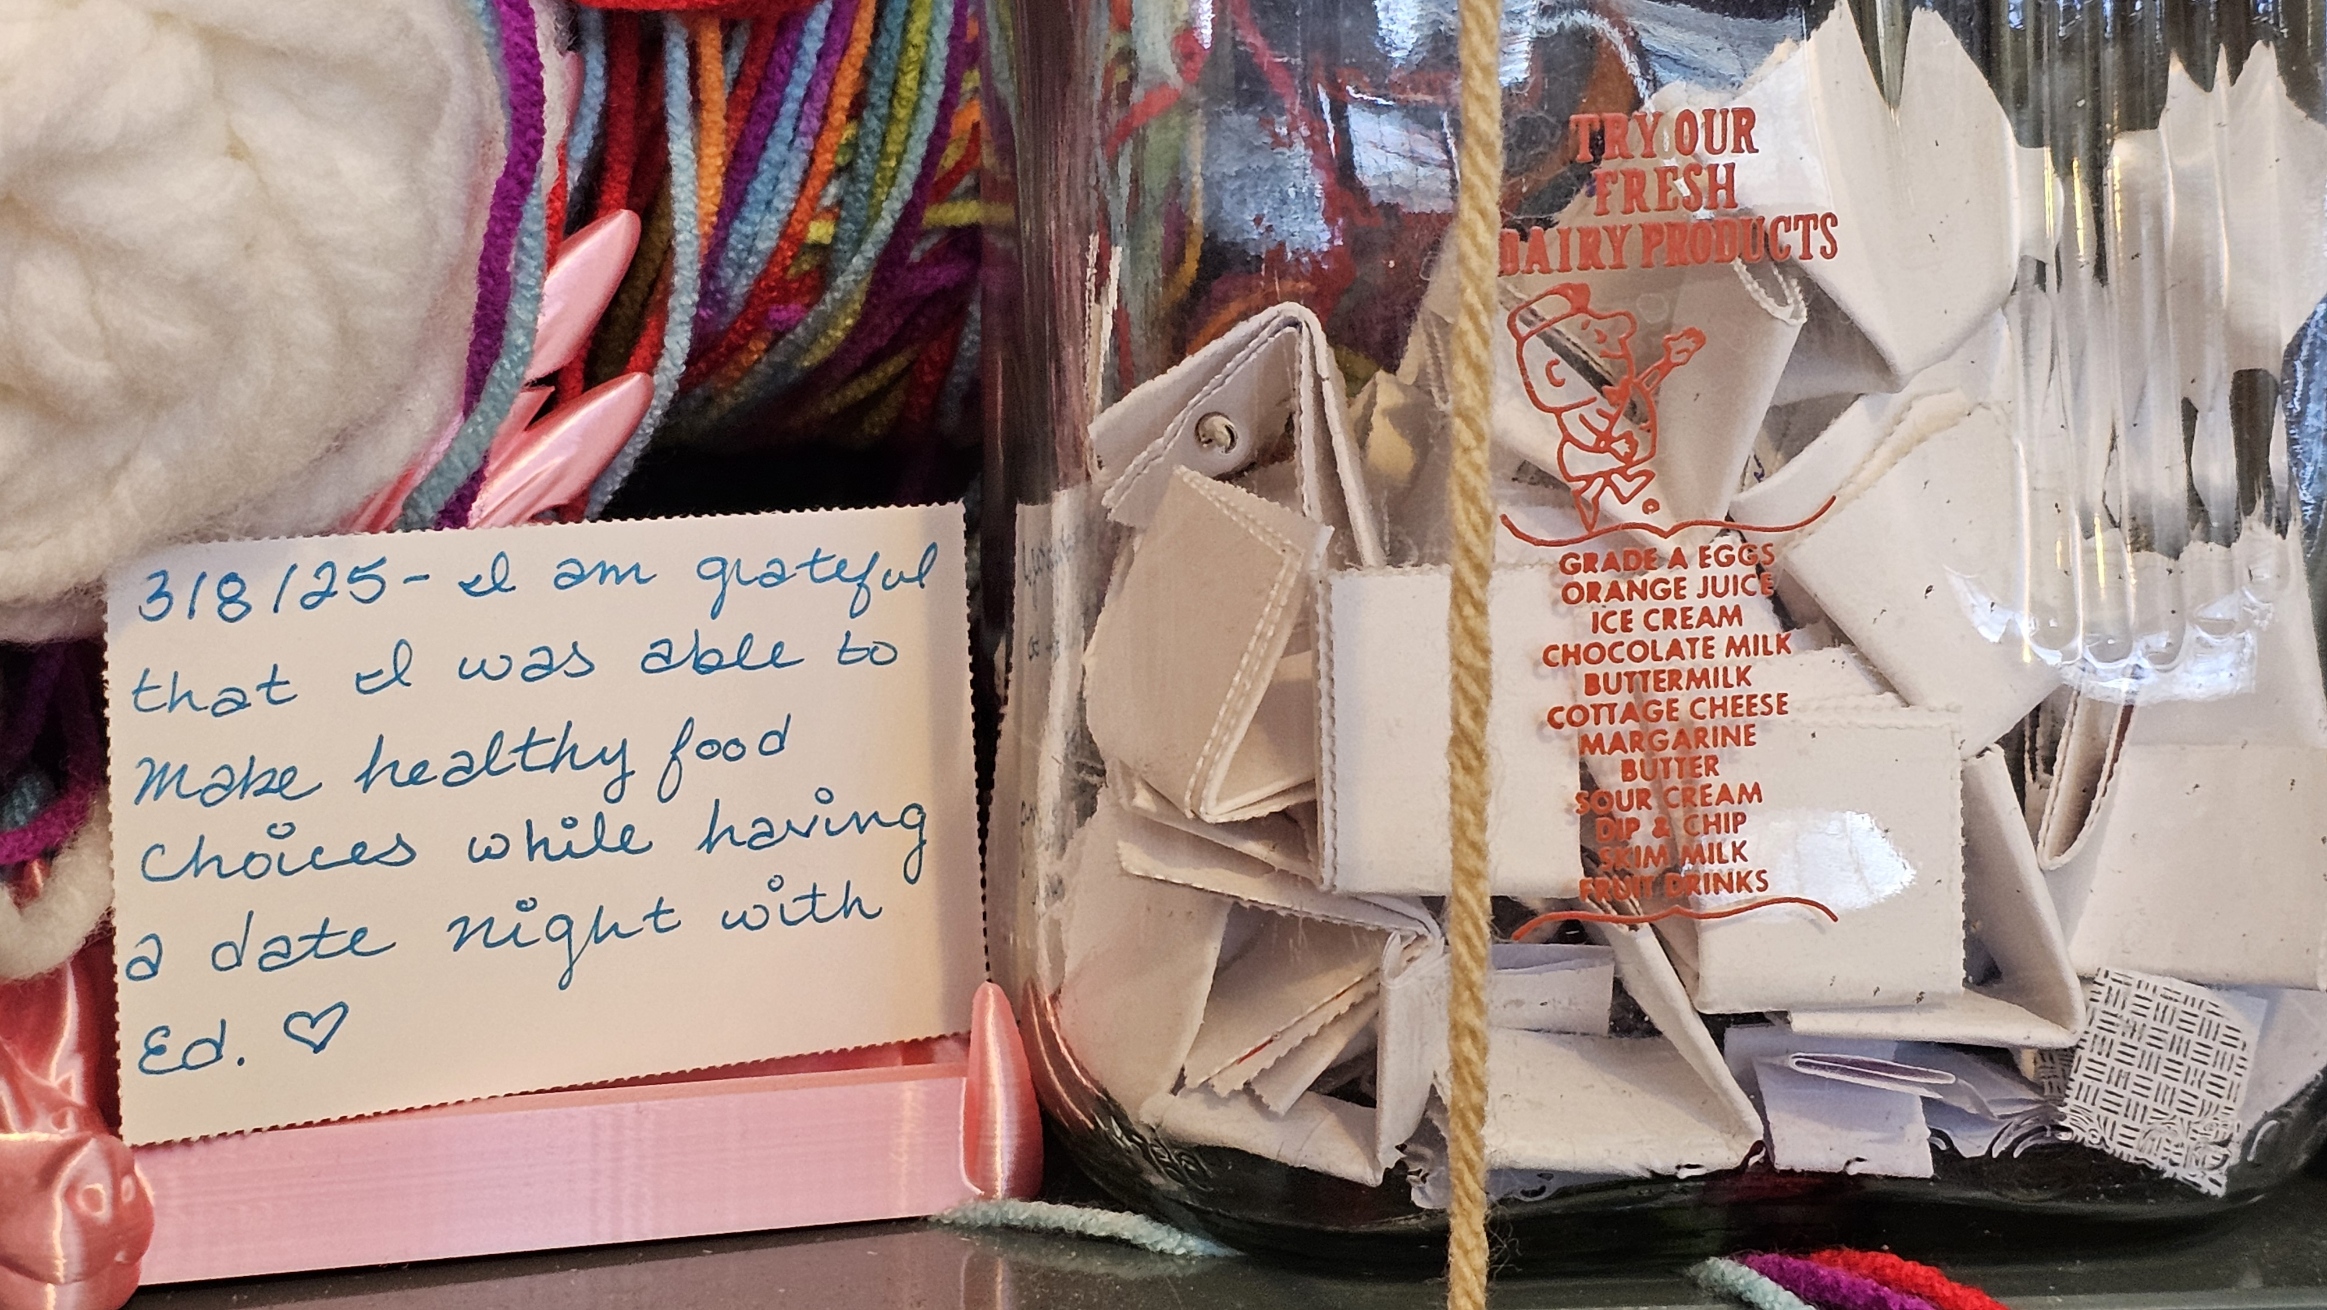 3/8/25 - I am grateful
that I was able to
make healthy food
choices while having
a date night with
Ed. ♡
TRY OUR
FRESH
DAIRY PRODUCTS
GRADE A EGGS
ORANGE JUICE
ICE CREAM
CHOCOLATE MILK
BUTTERMILK
COTTAGE CHEESE
MARGARINE
BUTTER
SOUR CREAM
DIP & CHIP
SKIM MILK
FRUIT DRINKS